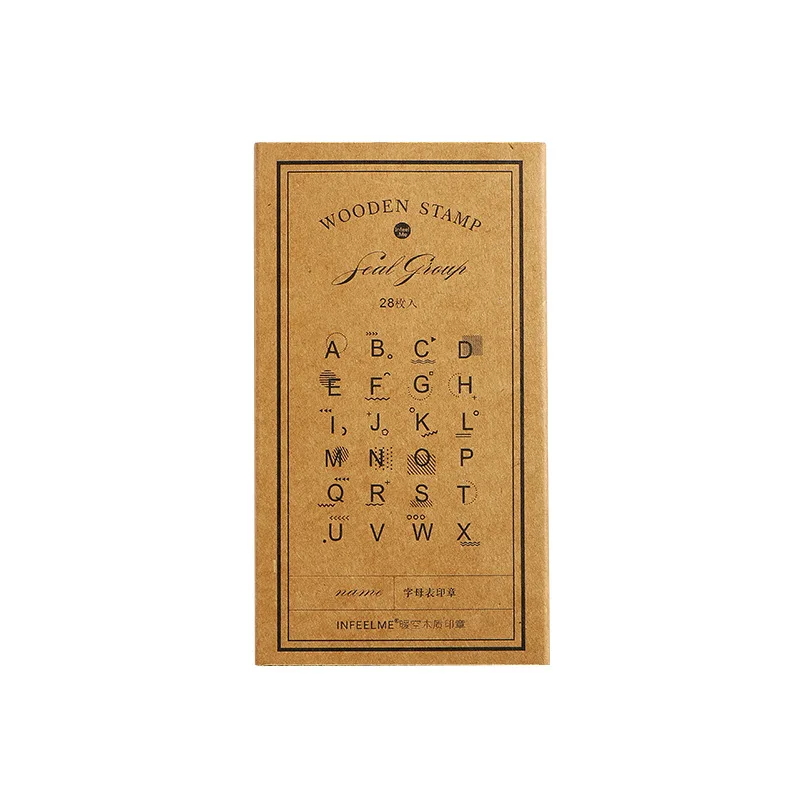 WOODEN STAMP
infeel
.Me
Seal Group
28枚入
A B C D
E F G H
I J K L
M N O P
Q R S T
U V W X
name 字母表印章
INFEELME®暖空木质印章